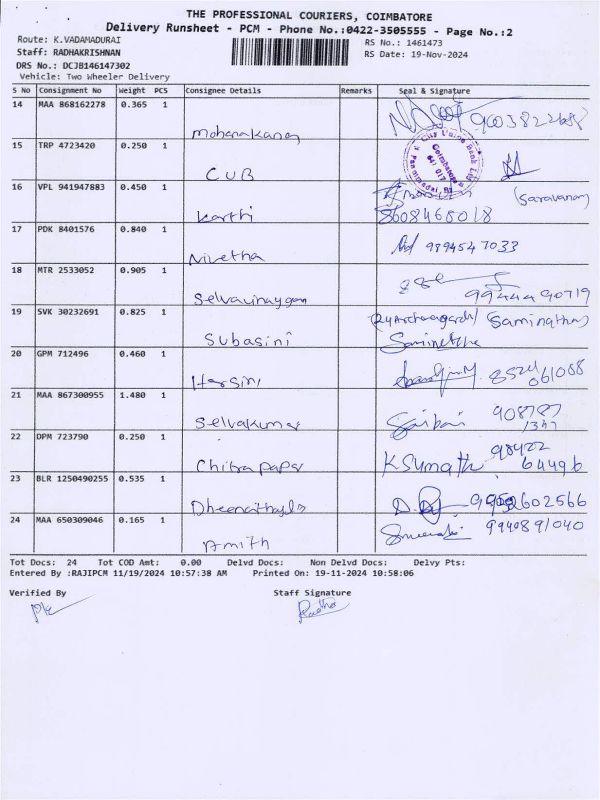 THE PROFESSIONAL COURIERS, COIMBATORE
Delivery Runsheet - PCM - Phone No.:0422-3505555 - Page No.:2
Route: K.VADAMADURAI
RS No.: 1461473
Staff: RADHAKRISHNAN
RS Date: 19-Nov-2024
DRS No.: DCJB146147302
Vehicle: Two Wheeler Delivery
S No Consignment No Weight PCS Consignee Details Remarks Seal & Signature
14 MAA 868162278 0.365 1
15 TRP 4723420 0.250 1
CUB
City Union Bank Ltd
16 VPL 941947883 0.450 1
(Saravanan)
Karthi 8608468018
17 PDK 8401576 0.840 1
Nivetha 9894547033
18 MTR 2533052 0.905 1
Selvavinayagan 99444 90719
19 SVK 30232691 0.825 1
(Saminathan)
Subasini
20 GPM 712496 0.460 1
Harsini 8524 061088
21 MAA 867300955 1.480 1
Selvakumar
22 DPM 723790 0.250 1
Chitra papar K Sumathi 98422 64496
23 BLR 1250490255 0.535 1
602566
24 MAA 650309046 0.165 1
Amith 9940891040
Tot Docs: 24 Tot COD Amt: 0.00 Delvd Docs: Non Delvd Docs: Delvy Pts:
Entered By :RAJIPCM 11/19/2024 10:57:38 AM Printed On: 19-11-2024 10:58:06
Verified By Staff Signature
Radha